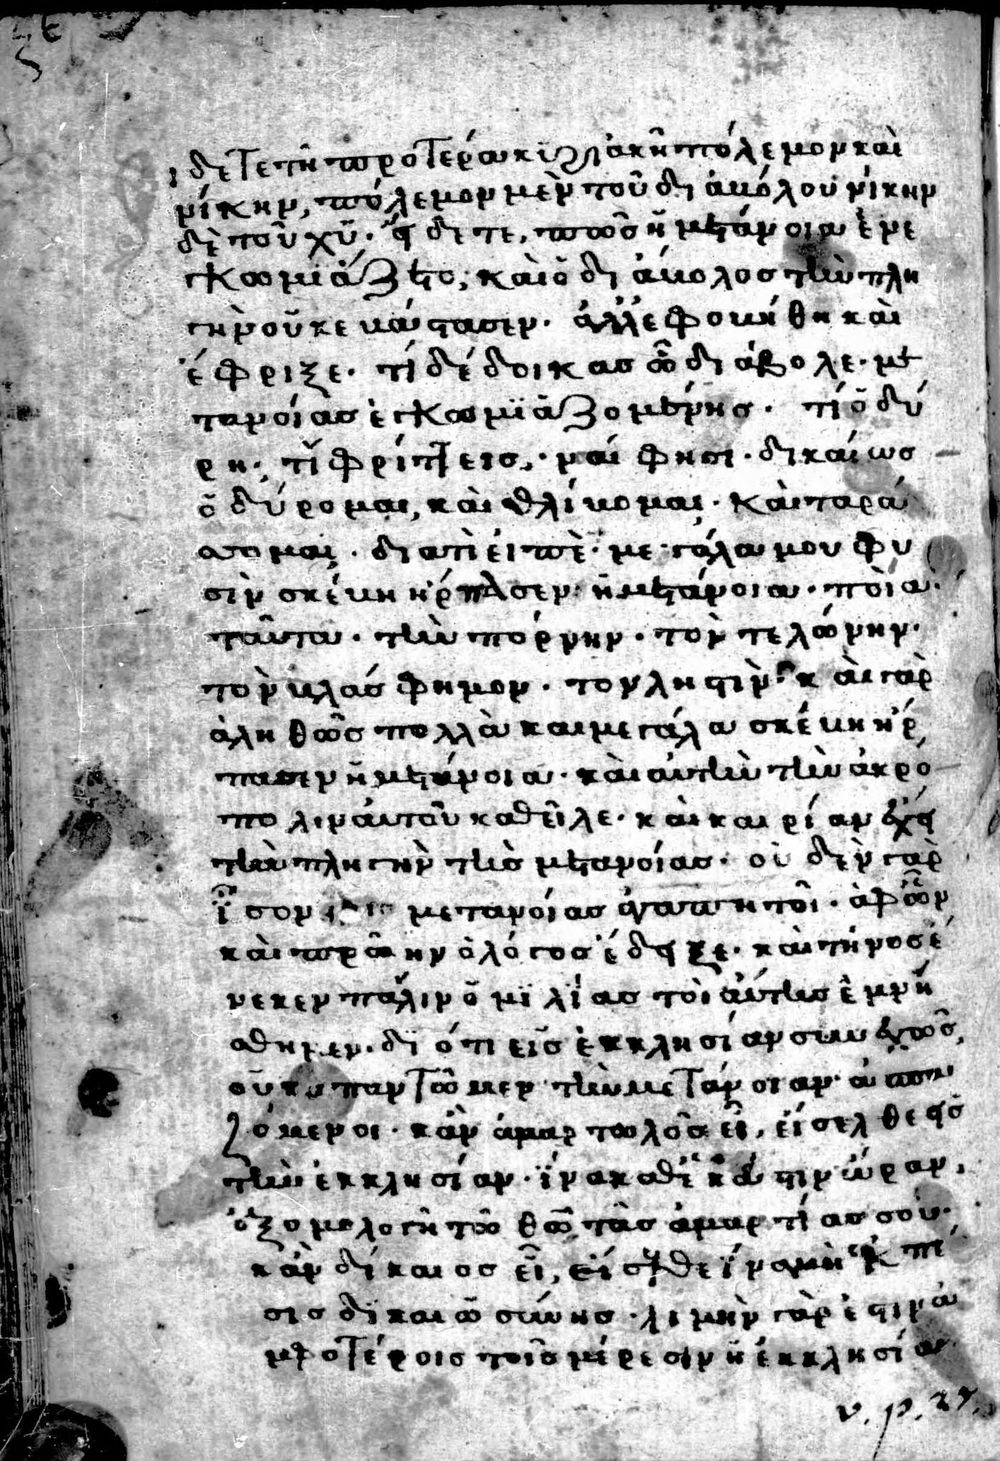 ἴδετε τῆ προτέρα κυριακῆ πόλεμον καὶ
νίκην, πόλεμον μὲν τοῦ διαβόλου νίκην
δὲ τοῦ χῦ. ἴδετε, πῶς ἡ μετάνοια ἐνε
κωμιάζετο, καὶ ὁ διάβολος τὴν πλη
γὴν οὐκ ἐβάστασεν. ἀλλ' ἐφοβήθη καὶ
ἔφριξε. τί δέδοικας ὦ διάβολε. με
τανοίας ἐγκωμϊαζομένης. τί ὀδύ
ρη. τί φρίττεις. ναί φησι. δικαίως
ὀδύρομαι, καὶ θλίβομαι. καὶ ταρά
σσομαι. διατὶ εἰπέ. μεγάλα μου φυ
σὶν σκέβη ἥρπασεν ἡ μετάνοια. ποῖα
ταῦτα. τὴν πόρνην. τὸν τελώνην.
τὸν βλάσφημον. τὸν ληστὴν. καὶ γὰρ
ἀληθῶς πολλὰ καὶ μεγάλα σκέβη ἥρ
πασεν ἡ μετάνοια. καὶ αὐτὴν τὴν ἀκρό
πολιν αὐτοῦ καθεῖλε. καὶ καιρίαν ἔχει
τὴν πληγὴν τῆς μετανοίας. οὐδὲν γὰρ
ἴσον μετανοίας ἀγαπητοὶ. ἀφ' ὧν
καὶ πρώην ὁ λόγος ἔδειξε. καὶ τίνος ἕ
νεκεν πάλιν ὁμϊλίας τοιαύτης ἐμνή
σθημεν. διότι εἰς ἐκκλησίαν συνεχῶς,
οὐκ ἀπαντῶμεν τὴν μετάνοιαν ἀσπα
ζόμενοι. κἂν ἁμαρτωλὸς εἶ, εἴσελθε εἰς
τὴν ἐκκλησίαν. ἵνα
ἐξομολογῆ τῶ θῶ τὰς ἁμαρτίας σου.
κἂν δίκαιος εἶ, εἴσελθε ἵνα μὴ ἐκπέ
σης δικαιοσύνης. λιμὴν γὰρ ἐστιν ἀ
μφοτέροις τοῖς μέρεσιν ἡ ἐκκλησία